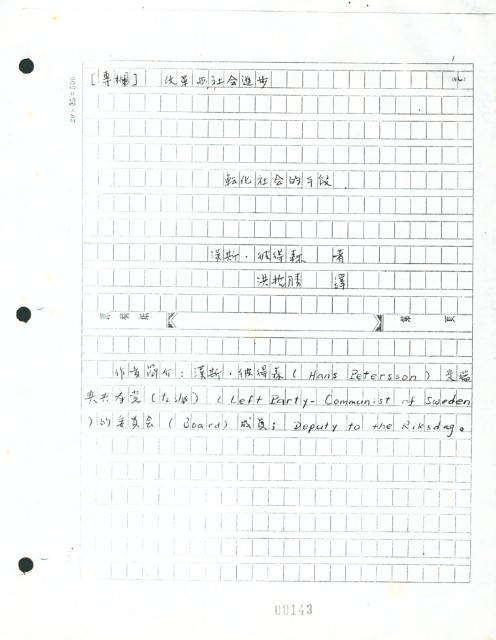 [專欄] 改革與社會進步
20×25=500
轉化社會的手段
漢斯·彼得森 著
洪 勝 譯
原稿紙 第 頁
作者簡介:漢斯·彼得森(Hans Petersson)是瑞
典共產党(左派)(Left Party-Communist of Sweden
)的委員會(Board)成員;Deputy to the Riksdag。
00143